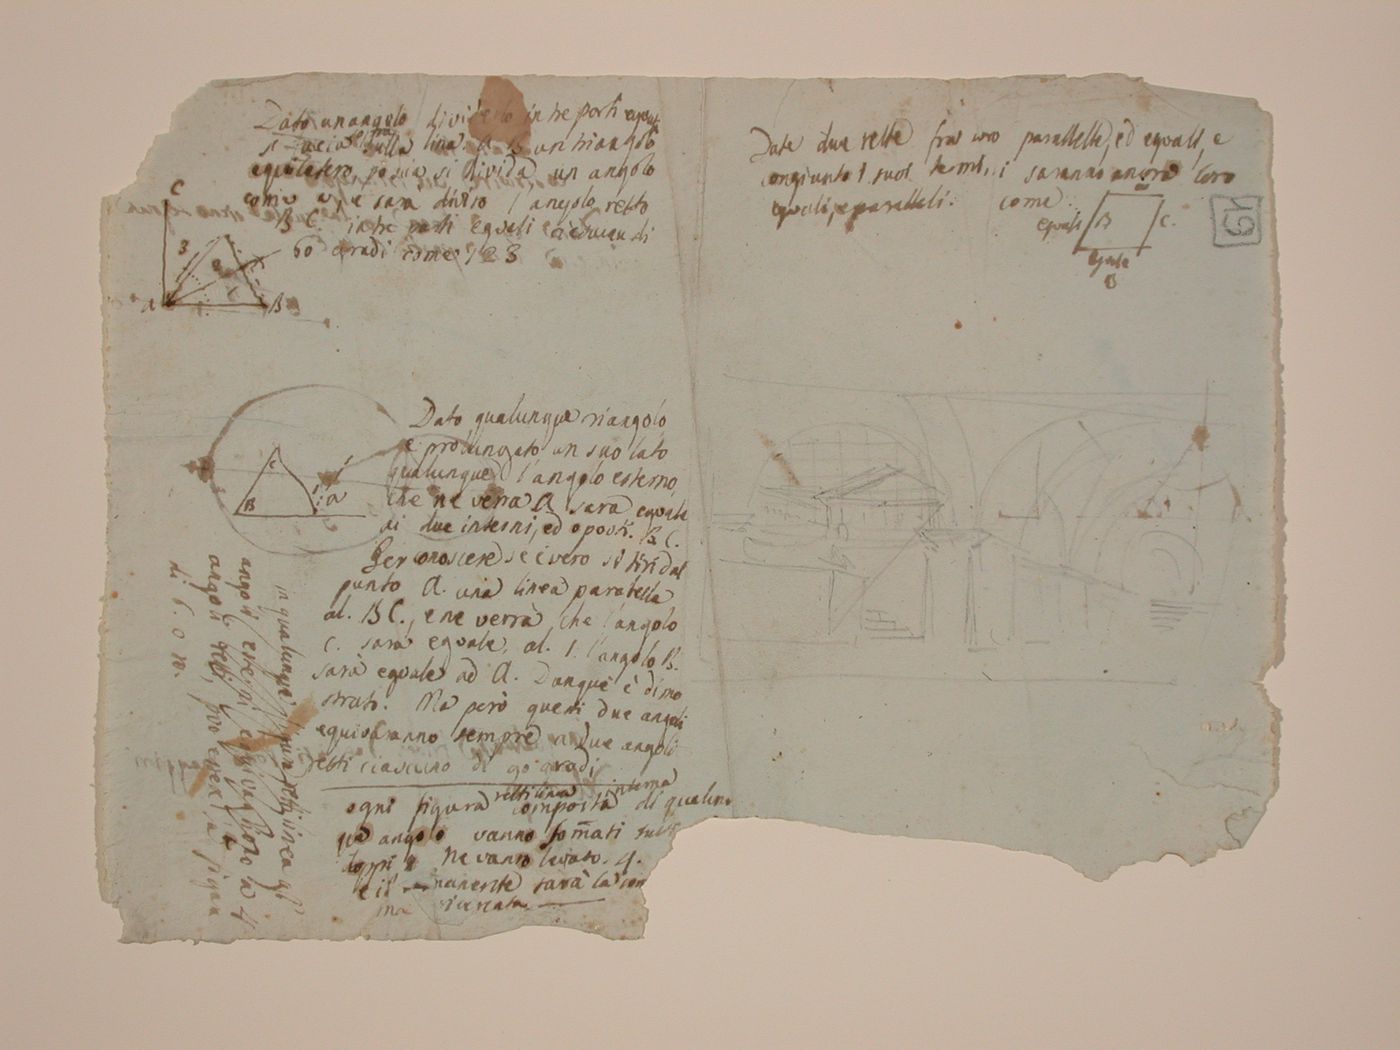 Dato un angolo dividerlo in tre parti equali
si faccia sopra della linea A B un triangolo
equilatero, poscia si divida un angolo
come a, e sara diviso l'angolo retto
B C. in tre parti equali ciascun di
60 gradi come 1 2 3
C
3
2
A
B
Date due rette fra loro parallelle, ed equali, e
congiunto i suoi termi.i saranno ancora loro
equali, e paralleli. come
equali
B
C.
equale
Dato qualunque triangolo
e prolungato un suo lato
qualunque l'angolo esterno
che ne verra A sara equale
ai due interni, ed oposti. B C.
C
1
B
a
Per conoscere se è vero si tiri dal
punto A. una linea paralella
al. BC., e ne verrà, che l'angolo
C. sarà equale, al. 1. l'angolo B.
sarà equale ad A. Dunque è dimo
strato. Ma però questi due angoli
equivaranno sempre a due angoli
retti ciascuno di 90 gradi
ogni figura rettilinea composta di qualun
que angolo vanno formati tutti
doppi e ne vanno levato. 4.
e il rimanente sarà la som
ma ricercata.
in qualunque figura rettilinea gl'
angoli esterni equivagliono a 4
angoli retti, può esser la figura
di 6. o 10.